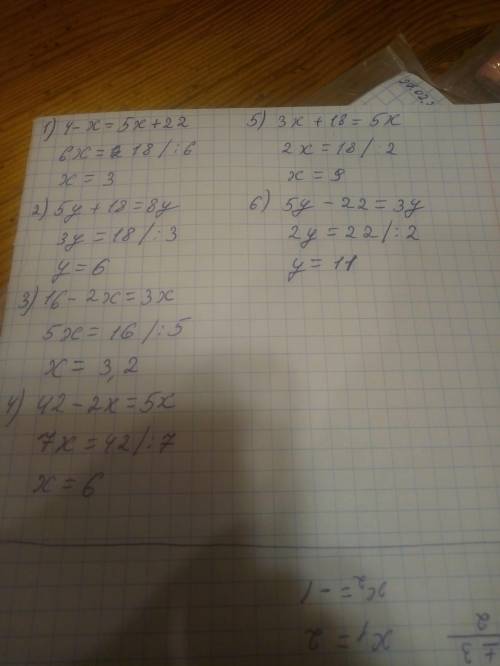 1) 4-x=5x+22
6x= 18/:6
x=3
2) 5y+18=8y
3y=18/:3
y=6
3) 16-2x=3x
5x=16/:5
x=3,2
4) 42-2x=5x
7x=42/:7
x=6
5) 3x+18=5x
2x=18/:2
x=9
6) 5y-22=3y
2y=22/:2
y=11
x1=2
x2=-1